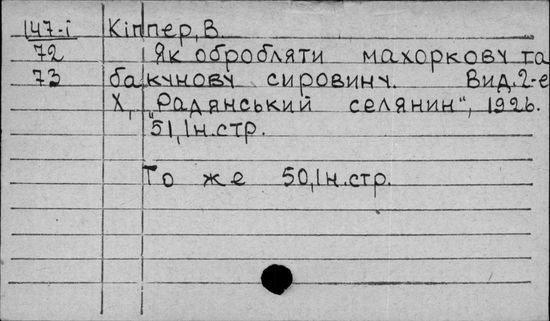 147-і Кіппер, В.
72 Як обробляти махоркову та
73 бакунову сировину. Вид. 2-е
Х, "Радянський селянин", 1926.
51, Ін. стр.
То же 50, Ін. стр.